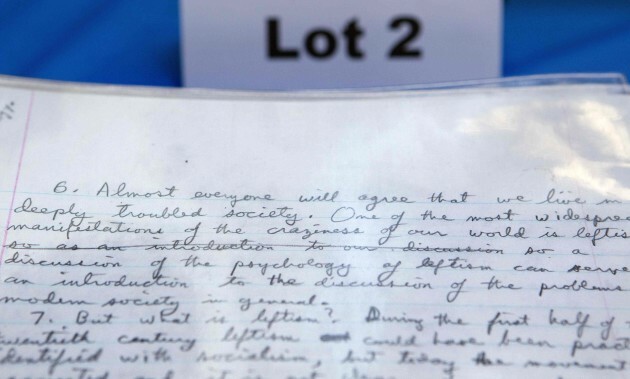 Lot 2
6. Almost everyone will agree that we live in
deeply troubled society. One of the most widespre
manifestations of the craziness of our world is leftis
so as an introduction to our discussion so a
discussion of the psychology of leftism can serve
an introduction to the discussion of the problems
modern society in general.
7. But what is leftism? During the first half of
wentieth century leftism could have been pract
identified with socialism, but today the movement
and it is not